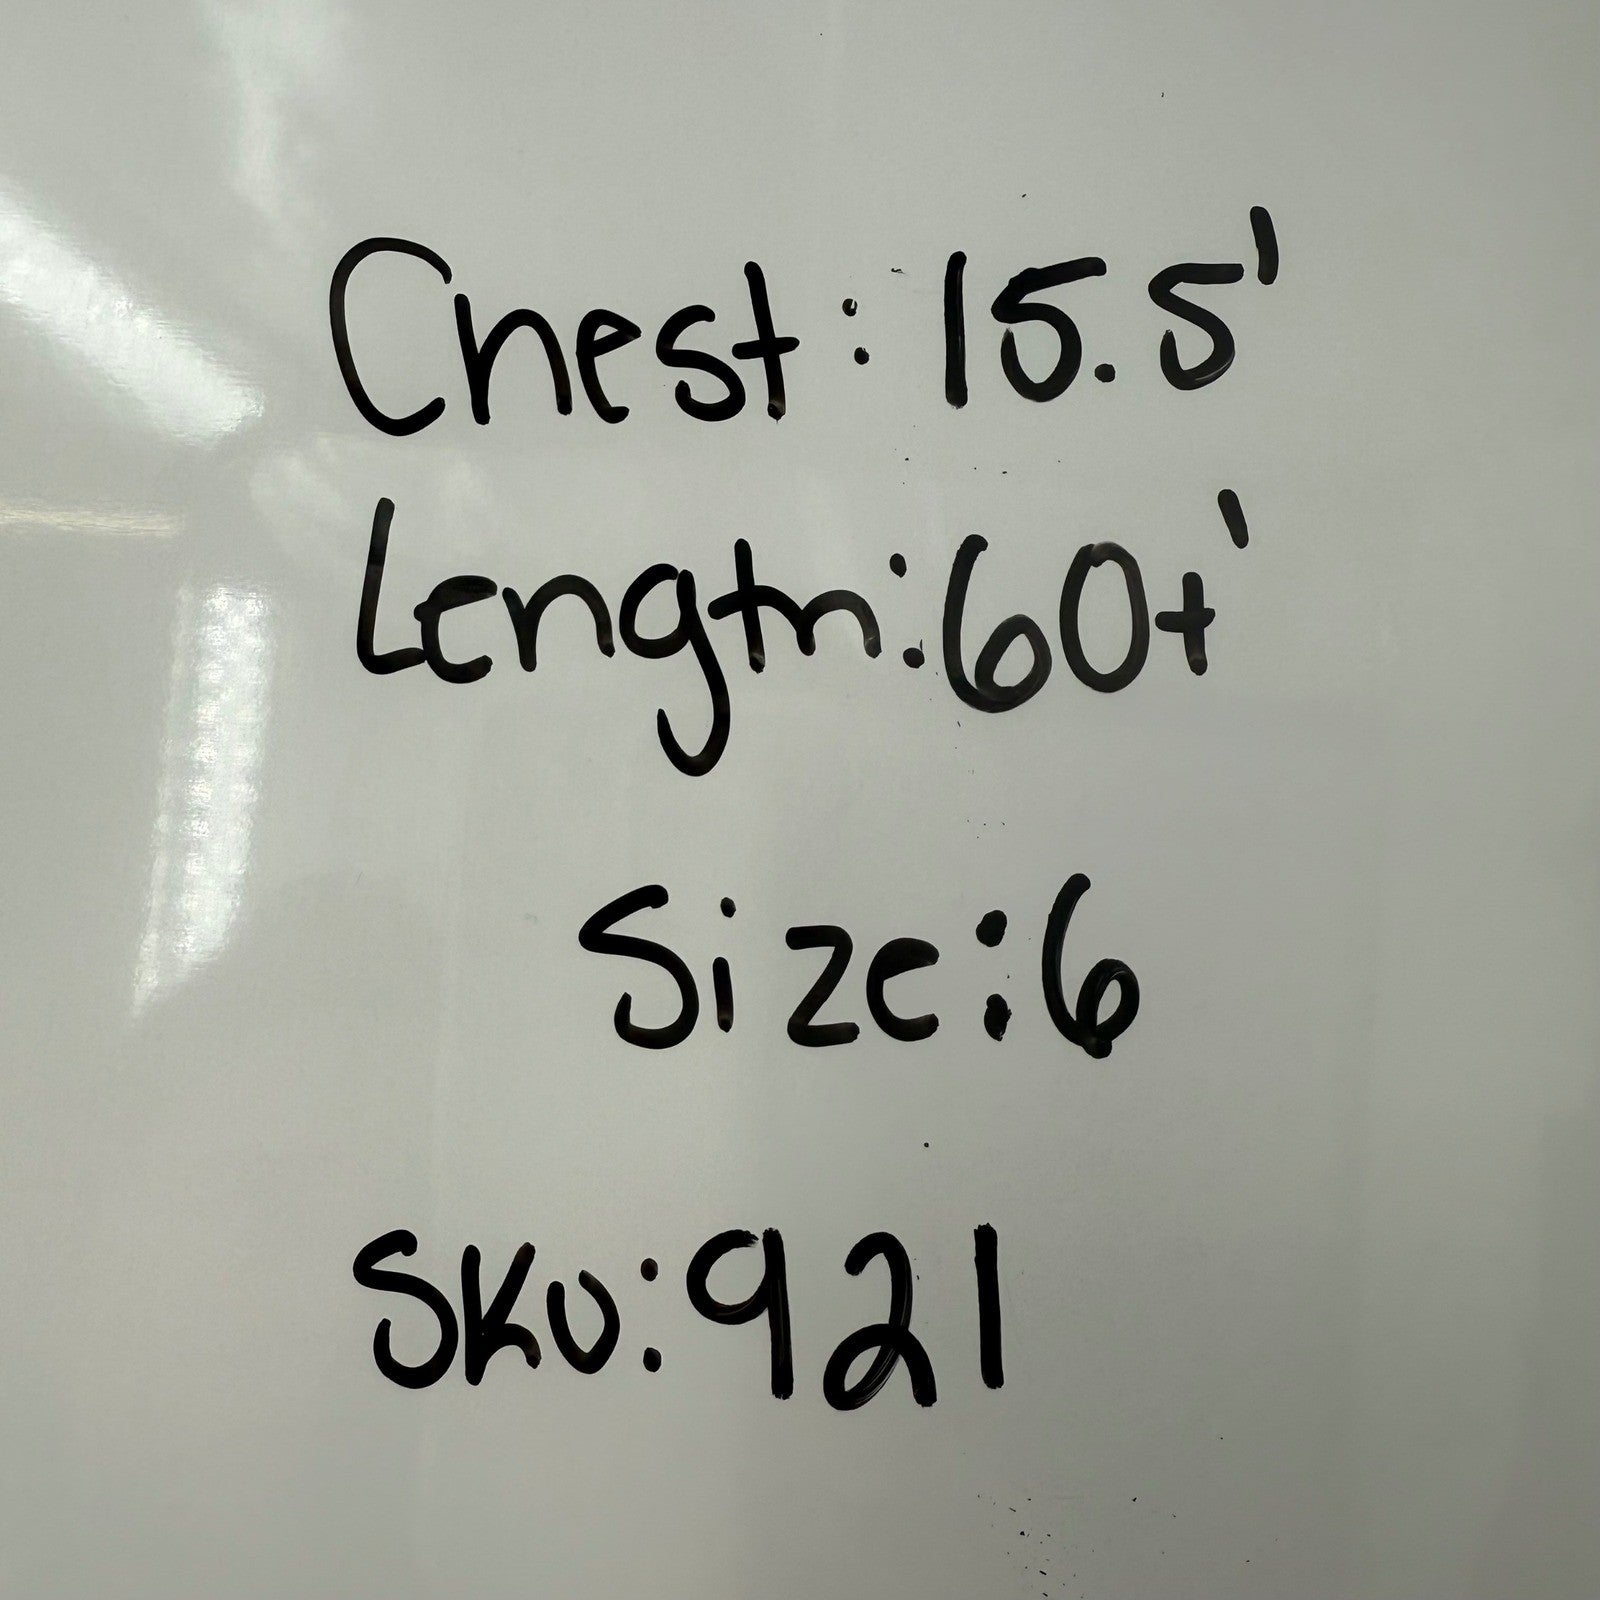 Chest: 15.5'
Length: 60+'
Size: 6
SKU: 921